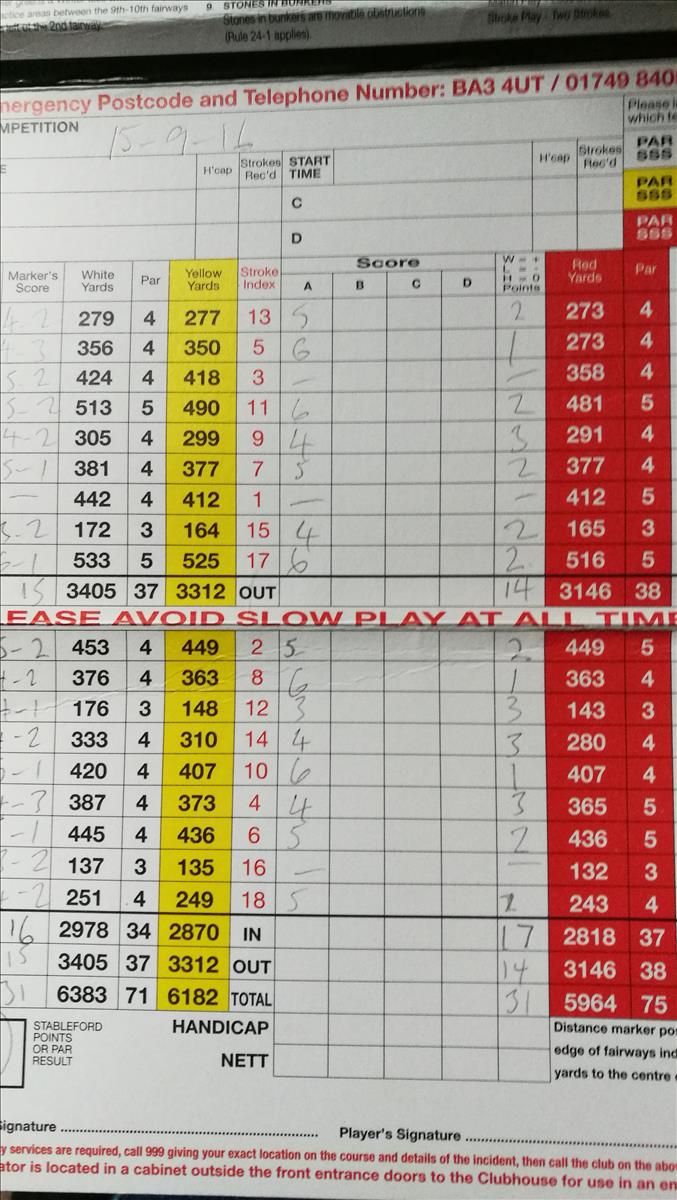 9. STONES IN BUNKERS
ctice areas between the 9th-10th fairways Stones in bunkers are movable obstructions Stroke Play - Two Strokes
left of the 2nd fairway. (Rule 24-1 applies).
mergency Postcode and Telephone Number: BA3 4UT / 01749 840
MPETITION 15-9-16 Please i
which te
E H'cap Strokes Rec'd START TIME H'cap Strokes Rec'd PAR SSS
C PAR SSS
D PAR SSS
Marker's Score White Yards Par Yellow Yards Stroke Index Score A B C D W = + L = - H = 0 Points Red Yards Par
4-2 279 4 277 13 5 2 273 4
4-3 356 4 350 5 6 1 273 4
5-2 424 4 418 3 – – 358 4
5-2 513 5 490 11 6 2 481 5
4-2 305 4 299 9 4 3 291 4
5-1 381 4 377 7 5 2 377 4
– 442 4 412 1 – – 412 5
3-2 172 3 164 15 4 2 165 3
6-1 533 5 525 17 6 2 516 5
15 3405 37 3312 OUT 14 3146 38
EASE AVOID SLOW PLAY AT ALL TIME
5-2 453 4 449 2 5 2 449 5
-2 376 4 363 8 6 1 363 4
-1 176 3 148 12 3 3 143 3
-2 333 4 310 14 4 3 280 4
-1 420 4 407 10 6 1 407 4
-3 387 4 373 4 4 3 365 5
-1 445 4 436 6 5 2 436 5
-2 137 3 135 16 – – 132 3
-2 251 4 249 18 5 243 4
16 2978 34 2870 IN 17 2818 37
15 3405 37 3312 OUT 14 3146 38
31 6383 71 6182 TOTAL 31 5964 75
STABLEFORD POINTS OR PAR RESULT HANDICAP Distance marker po
NETT edge of fairways ind
yards to the centre
Signature Player's Signature
y services are required, call 999 giving your exact location on the course and details of the incident, then call the club on the abo
ator is located in a cabinet outside the front entrance doors to the Clubhouse for use in an em